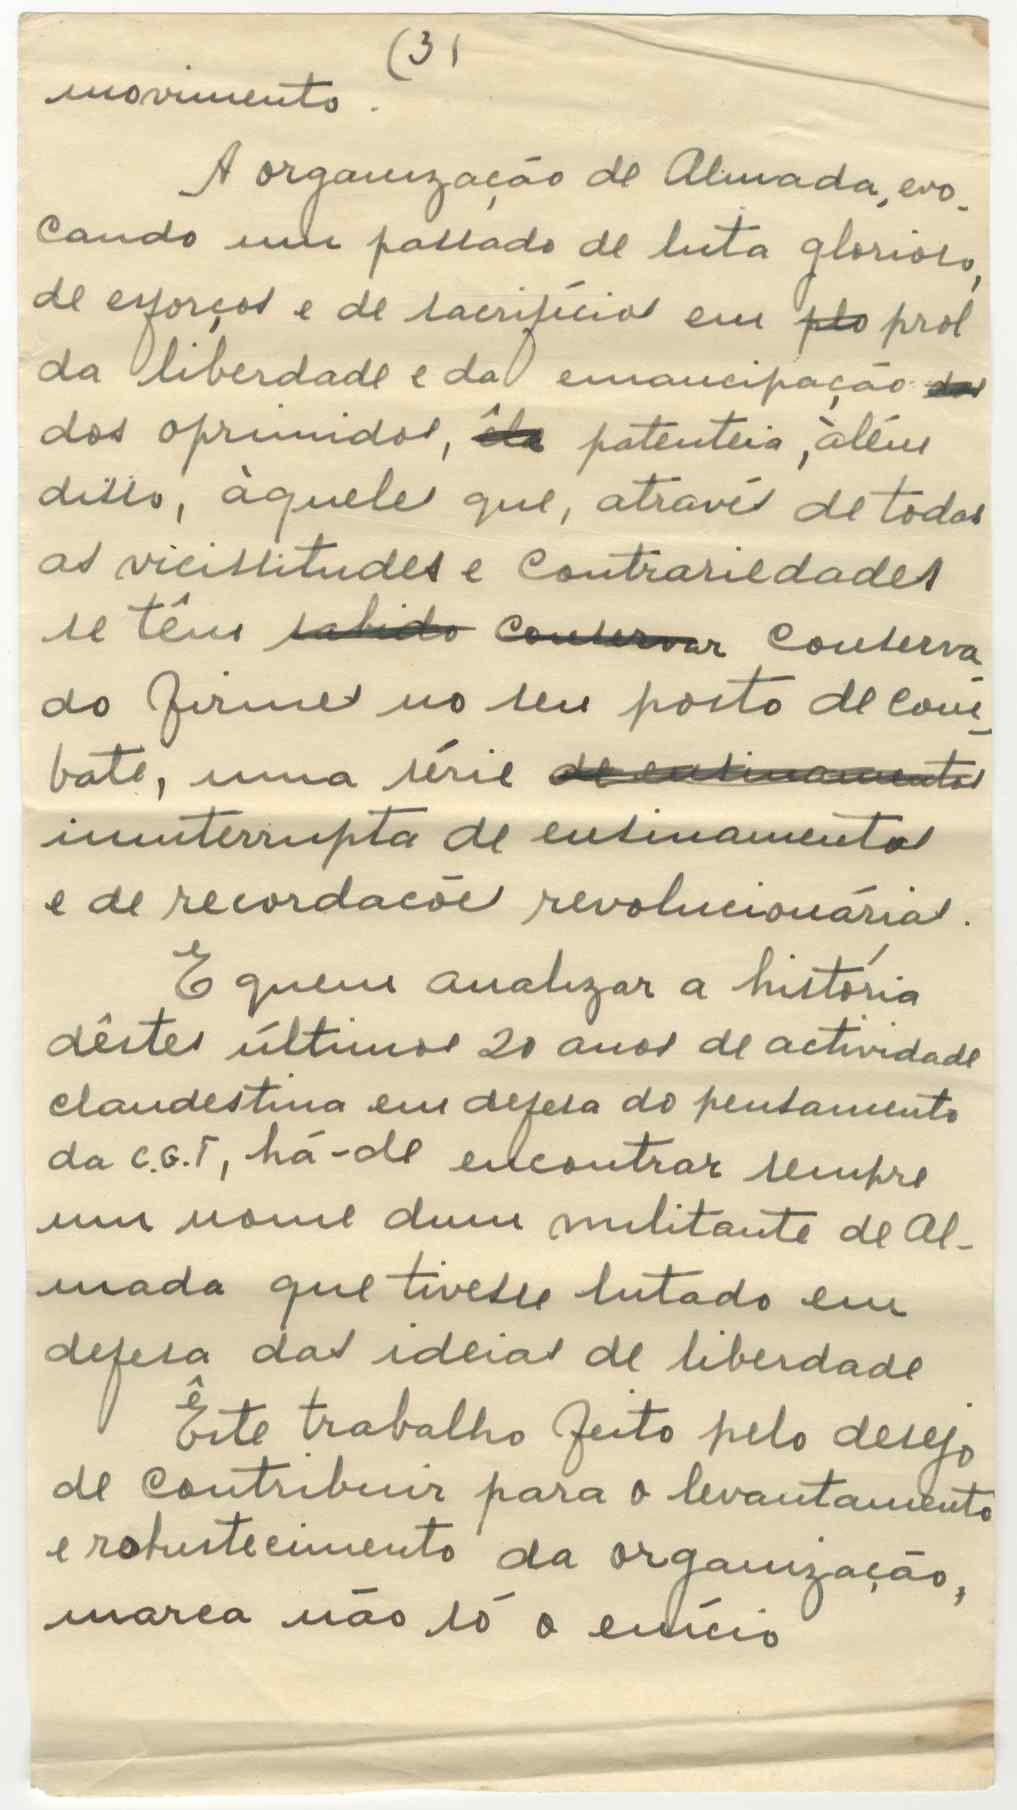 (3)
movimento.
A organização de Almada, evo-
cando um passado de luta glorioso,
de esforços e de sacrifícios em plo prol
da liberdade e da emancipação das
dos oprimidos, êla patenteia, àlém
disso, àqueles que, através de todas
as vicissitudes e contrariedades
se têm sabido conservar conserva
do firmes no seu posto de com-
bate, uma série de ensinamentos
ininterrupta de ensinamentos
e de recordacões revolucionárias.
E quem analizar a história
dêstes últimos 20 anos de actividade
clandestina em defesa do pensamento
da C.G.T, há-de encontrar sempre
um nome dum militante de Al-
mada que tivesse lutado em
defesa das ideias de liberdade
Êste trabalho feito pelo desejo
de contribuir para o levantamento
e robustecimento da organização,
marca não só o enício